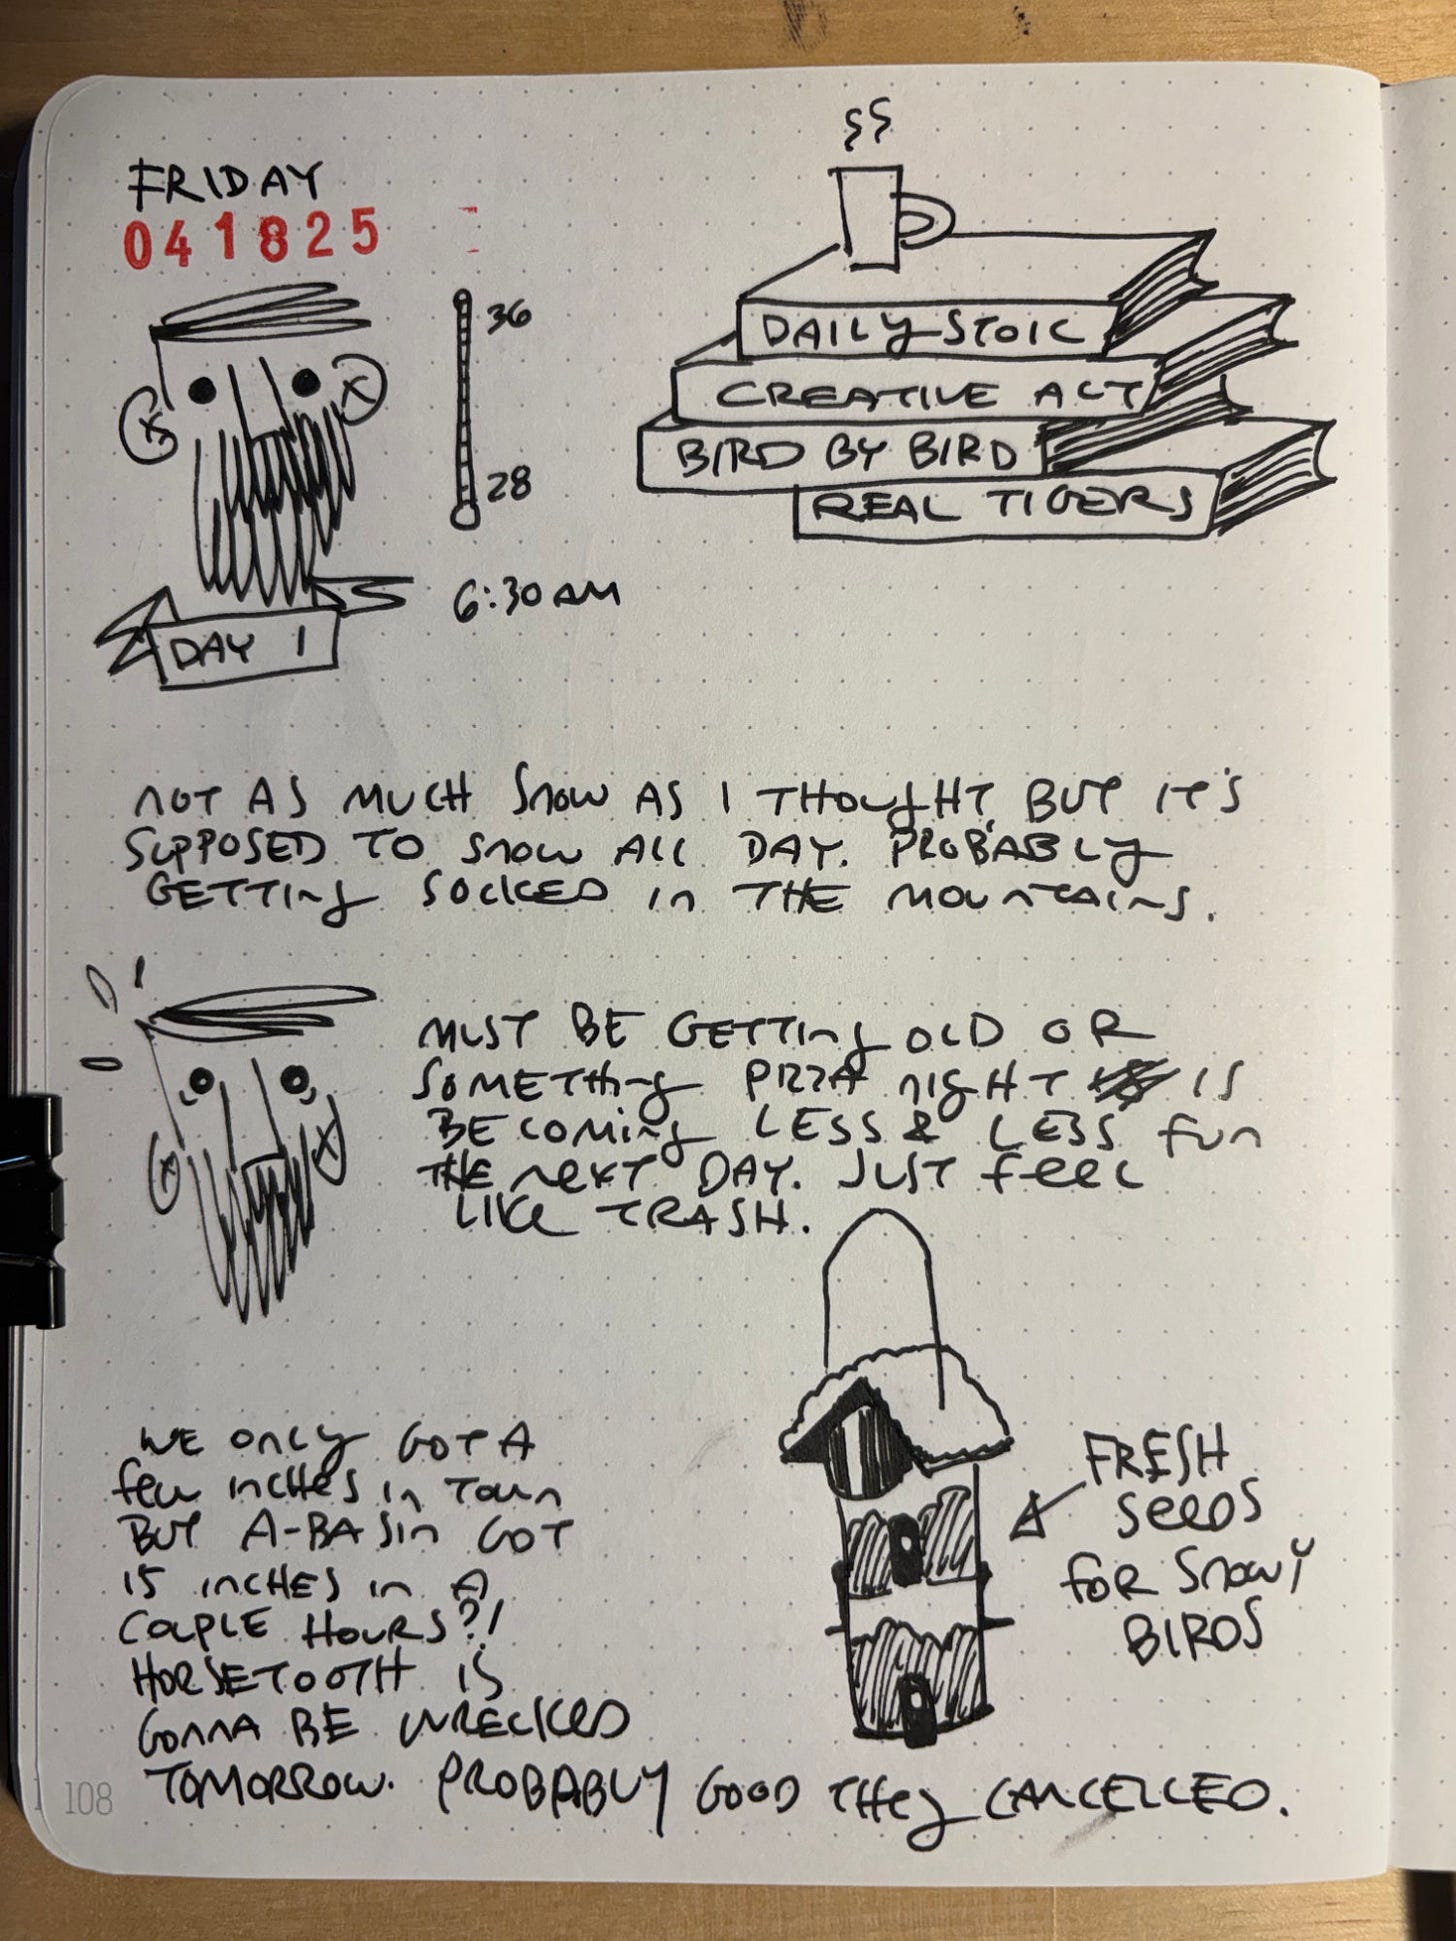 FRIDAY
041825
36
28
6:30 AM
DAY 1
DAILY STOIC
CREATIVE ACT
BIRD BY BIRD
REAL TIGERS
NOT AS MUCH SNOW AS I THOUGHT, BUT IT'S
SUPPOSED TO SNOW ALL DAY. PROBABLY
GETTING SOCKED IN THE MOUNTAINS.
MUST BE GETTING OLD OR
SOMETHING PIZZA NIGHT IS
BECOMING LESS & LESS FUN
THE NEXT DAY. JUST FEEL
LIKE TRASH.
WE ONLY GOT A
FEW INCHES IN TOWN
BUT A-BASIN GOT
15 INCHES IN A
COUPLE HOURS?!
HORSETOOTH IS
GONNA BE WRECKED
TOMORROW. PROBABLY GOOD THEY CANCELLED.
FRESH
SEEDS
FOR SNOWY
BIRDS
108